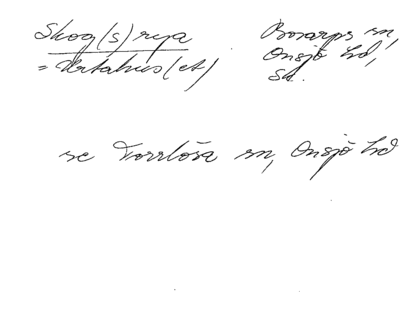 Skog(s)rya Bosarps sn,
= Hrtahus(et) Onsjö hd,
Sk.
se Torrlösa sn, Onsjö hd